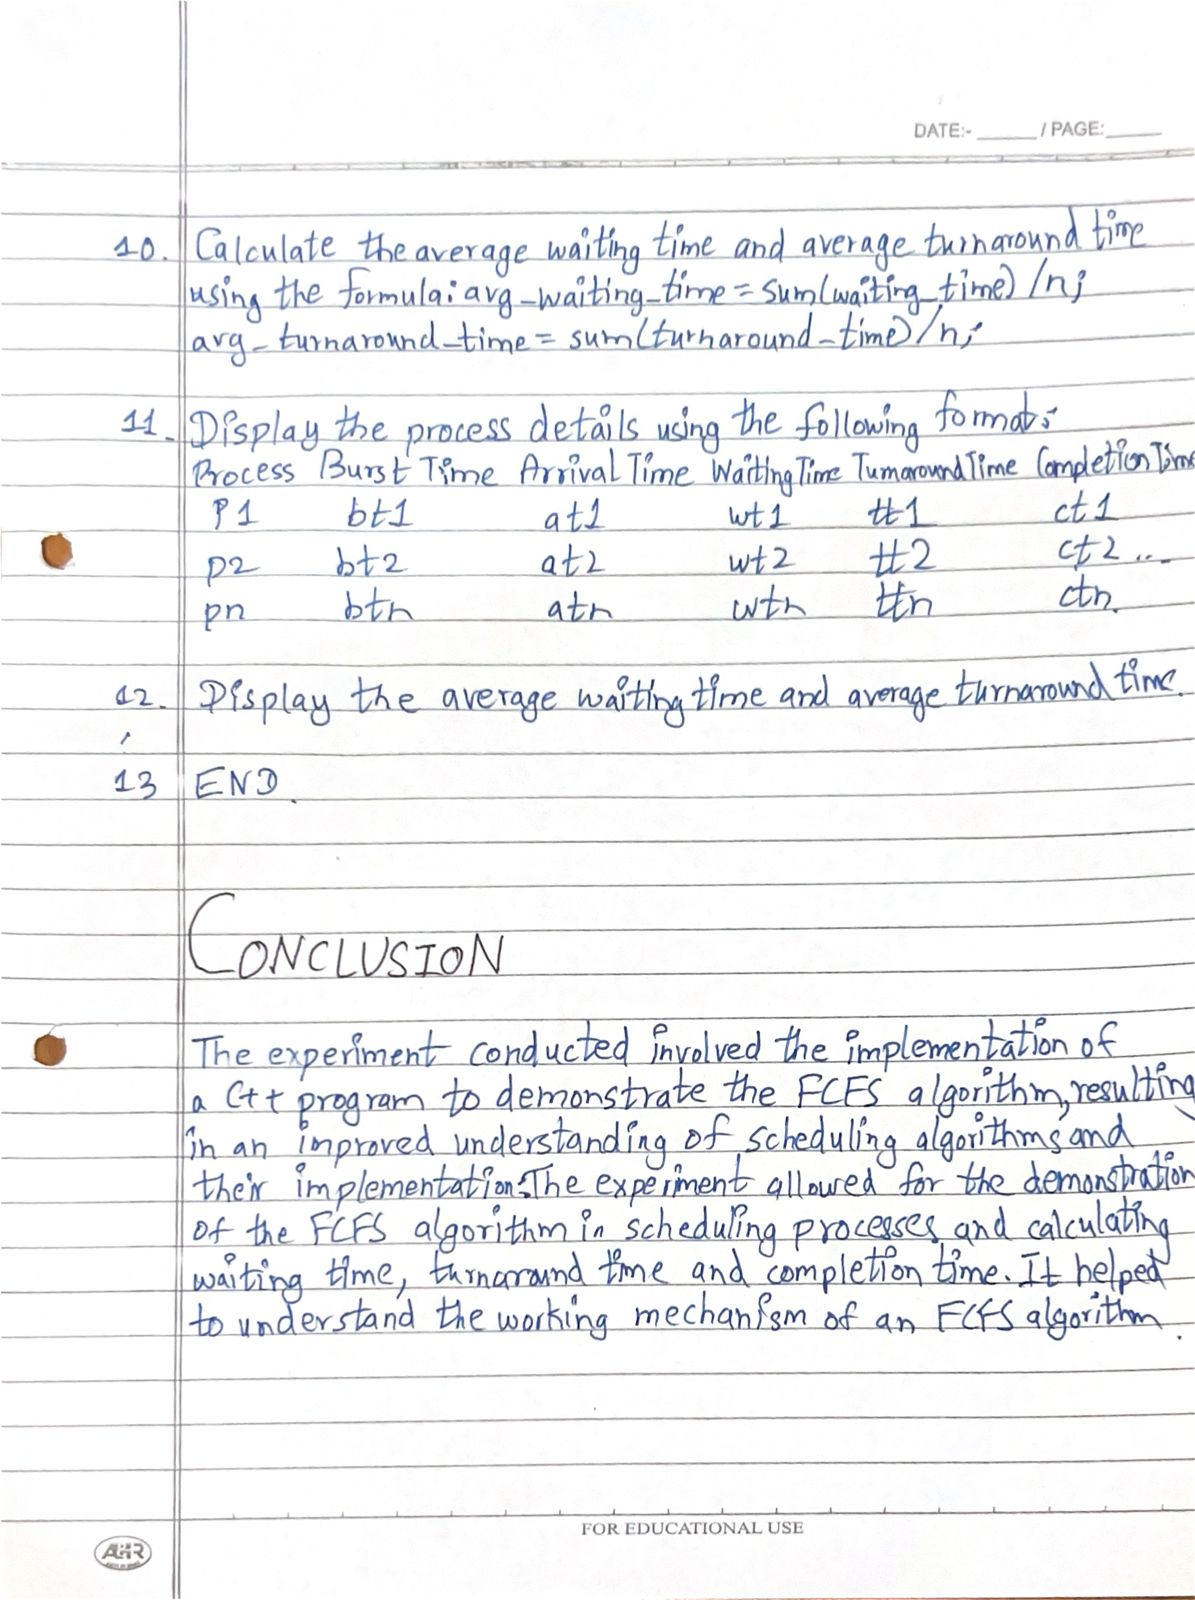 DATE:- _____ / PAGE: _____
10. Calculate the average waiting time and average turnaround time
using the formula: avg_waiting_time = sum(waiting_time) /n;
avg_turnaround_time = sum(turnaround_time)/n;
11. Display the process details using the following format:
Process Burst Time Arrival Time Waiting Time Turnaround Time Completion Time
P1 bt1 at1 wt1 tt1 ct1
p2 bt2 at2 wt2 tt2 ct2 ...
pn btn atn wtn ttn ctn.
12. Display the average waiting time and average turnaround time.
13 END.
CONCLUSION
The experiment conducted involved the implementation of
a C++ program to demonstrate the FCFS algorithm, resulting
in an improved understanding of scheduling algorithms and
their implementation. The experiment allowed for the demonstration
of the FCFS algorithm in scheduling processes and calculating
waiting time, turnaround time and completion time. It helped
to understand the working mechanism of an FCFS algorithm.
FOR EDUCATIONAL USE
AHR